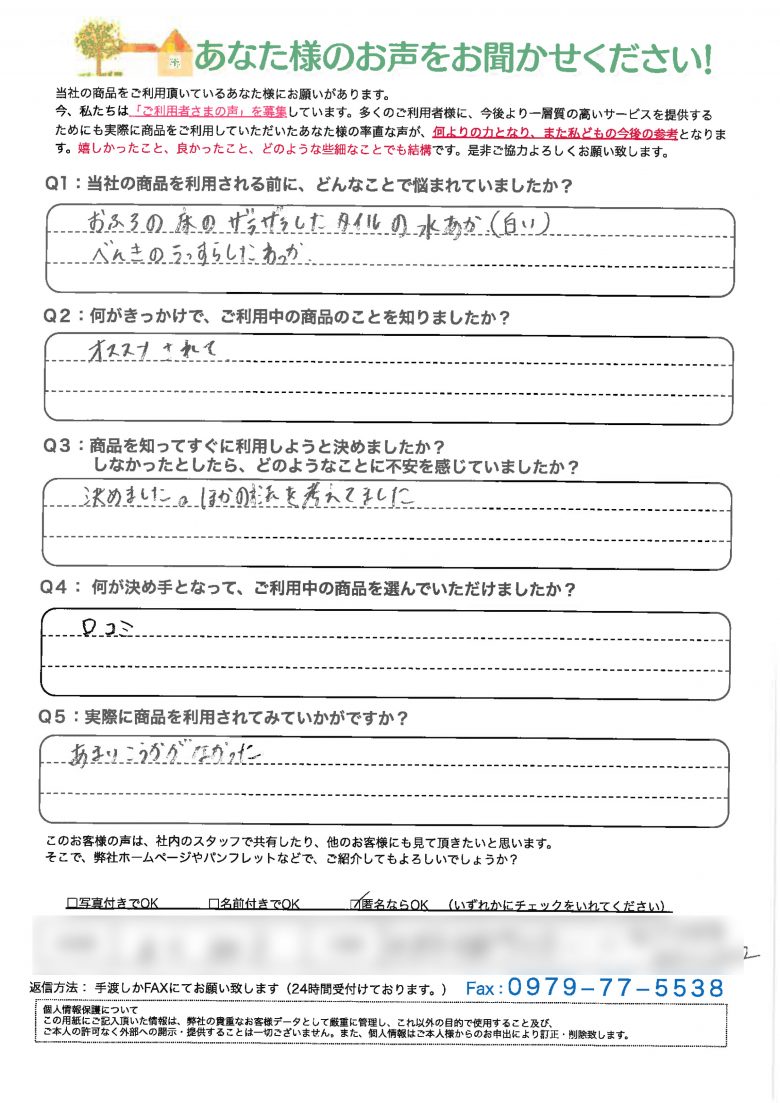 あなた様のお声をお聞かせください!
当社の商品をご利用頂いているあなた様にお願いがあります。
今、私たちは「ご利用者さまの声」を募集しています。多くのご利用者様に、今後より一層質の高いサービスを提供する
ためにも実際に商品をご利用していただいたあなた様の率直な声が、何よりの力となり、また私どもの今後の参考となりま
す。嬉しかったこと、良かったこと、どのような些細なことでも結構です。是非ご協力よろしくお願い致します。
Q1：当社の商品を利用される前に、どんなことで悩まれていましたか？
おふろの床のザラザラしたタイルの水あか.(白い)
べんきのうっすらしたわっか.
Q2：何がきっかけで、ご利用中の商品のことを知りましたか？
オススメされて.
Q3：商品を知ってすぐに利用しようと決めましたか？
しなかったとしたら、どのようなことに不安を感じていましたか？
決めました。ほかの を考えてました
Q4： 何が決め手となって、ご利用中の商品を選んでいただけましたか？
口コミ
Q5：実際に商品を利用されてみていかがですか？
あまりこうかがなかった
このお客様の声は、社内のスタッフで共有したり、他のお客様にも見て頂きたいと思います。
そこで、弊社ホームページやパンフレットなどで、ご紹介してもよろしいでしょうか？
□写真付きでOK □名前付きでOK ☑匿名ならOK （いずれかにチェックをいれてください）
返信方法： 手渡しかFAXにてお願い致します（24時間受付けております。） Fax：0979-77-5538
個人情報保護について
この用紙にご記入頂いた情報は、弊社の貴重なお客様データとして厳重に管理し、これ以外の目的で使用すること及び、
ご本人の許可なく外部への開示・提供することは一切ございません。また、個人情報はご本人様からのお申出により訂正・削除致します。